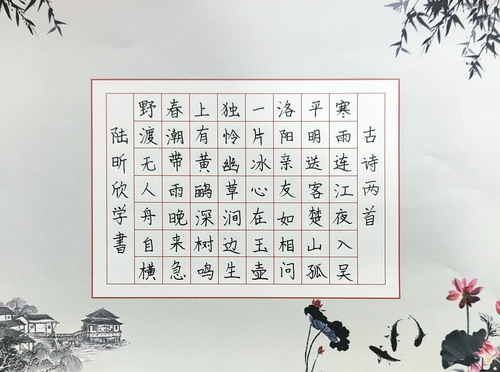 古诗两首
寒雨连江夜入吴
平明送客楚山孤
洛阳亲友如相问
一片冰心在玉壶
独怜幽草涧边生
上有黄鹂深树鸣
春潮带雨晚来急
野渡无人舟自横
陆昕欣学書